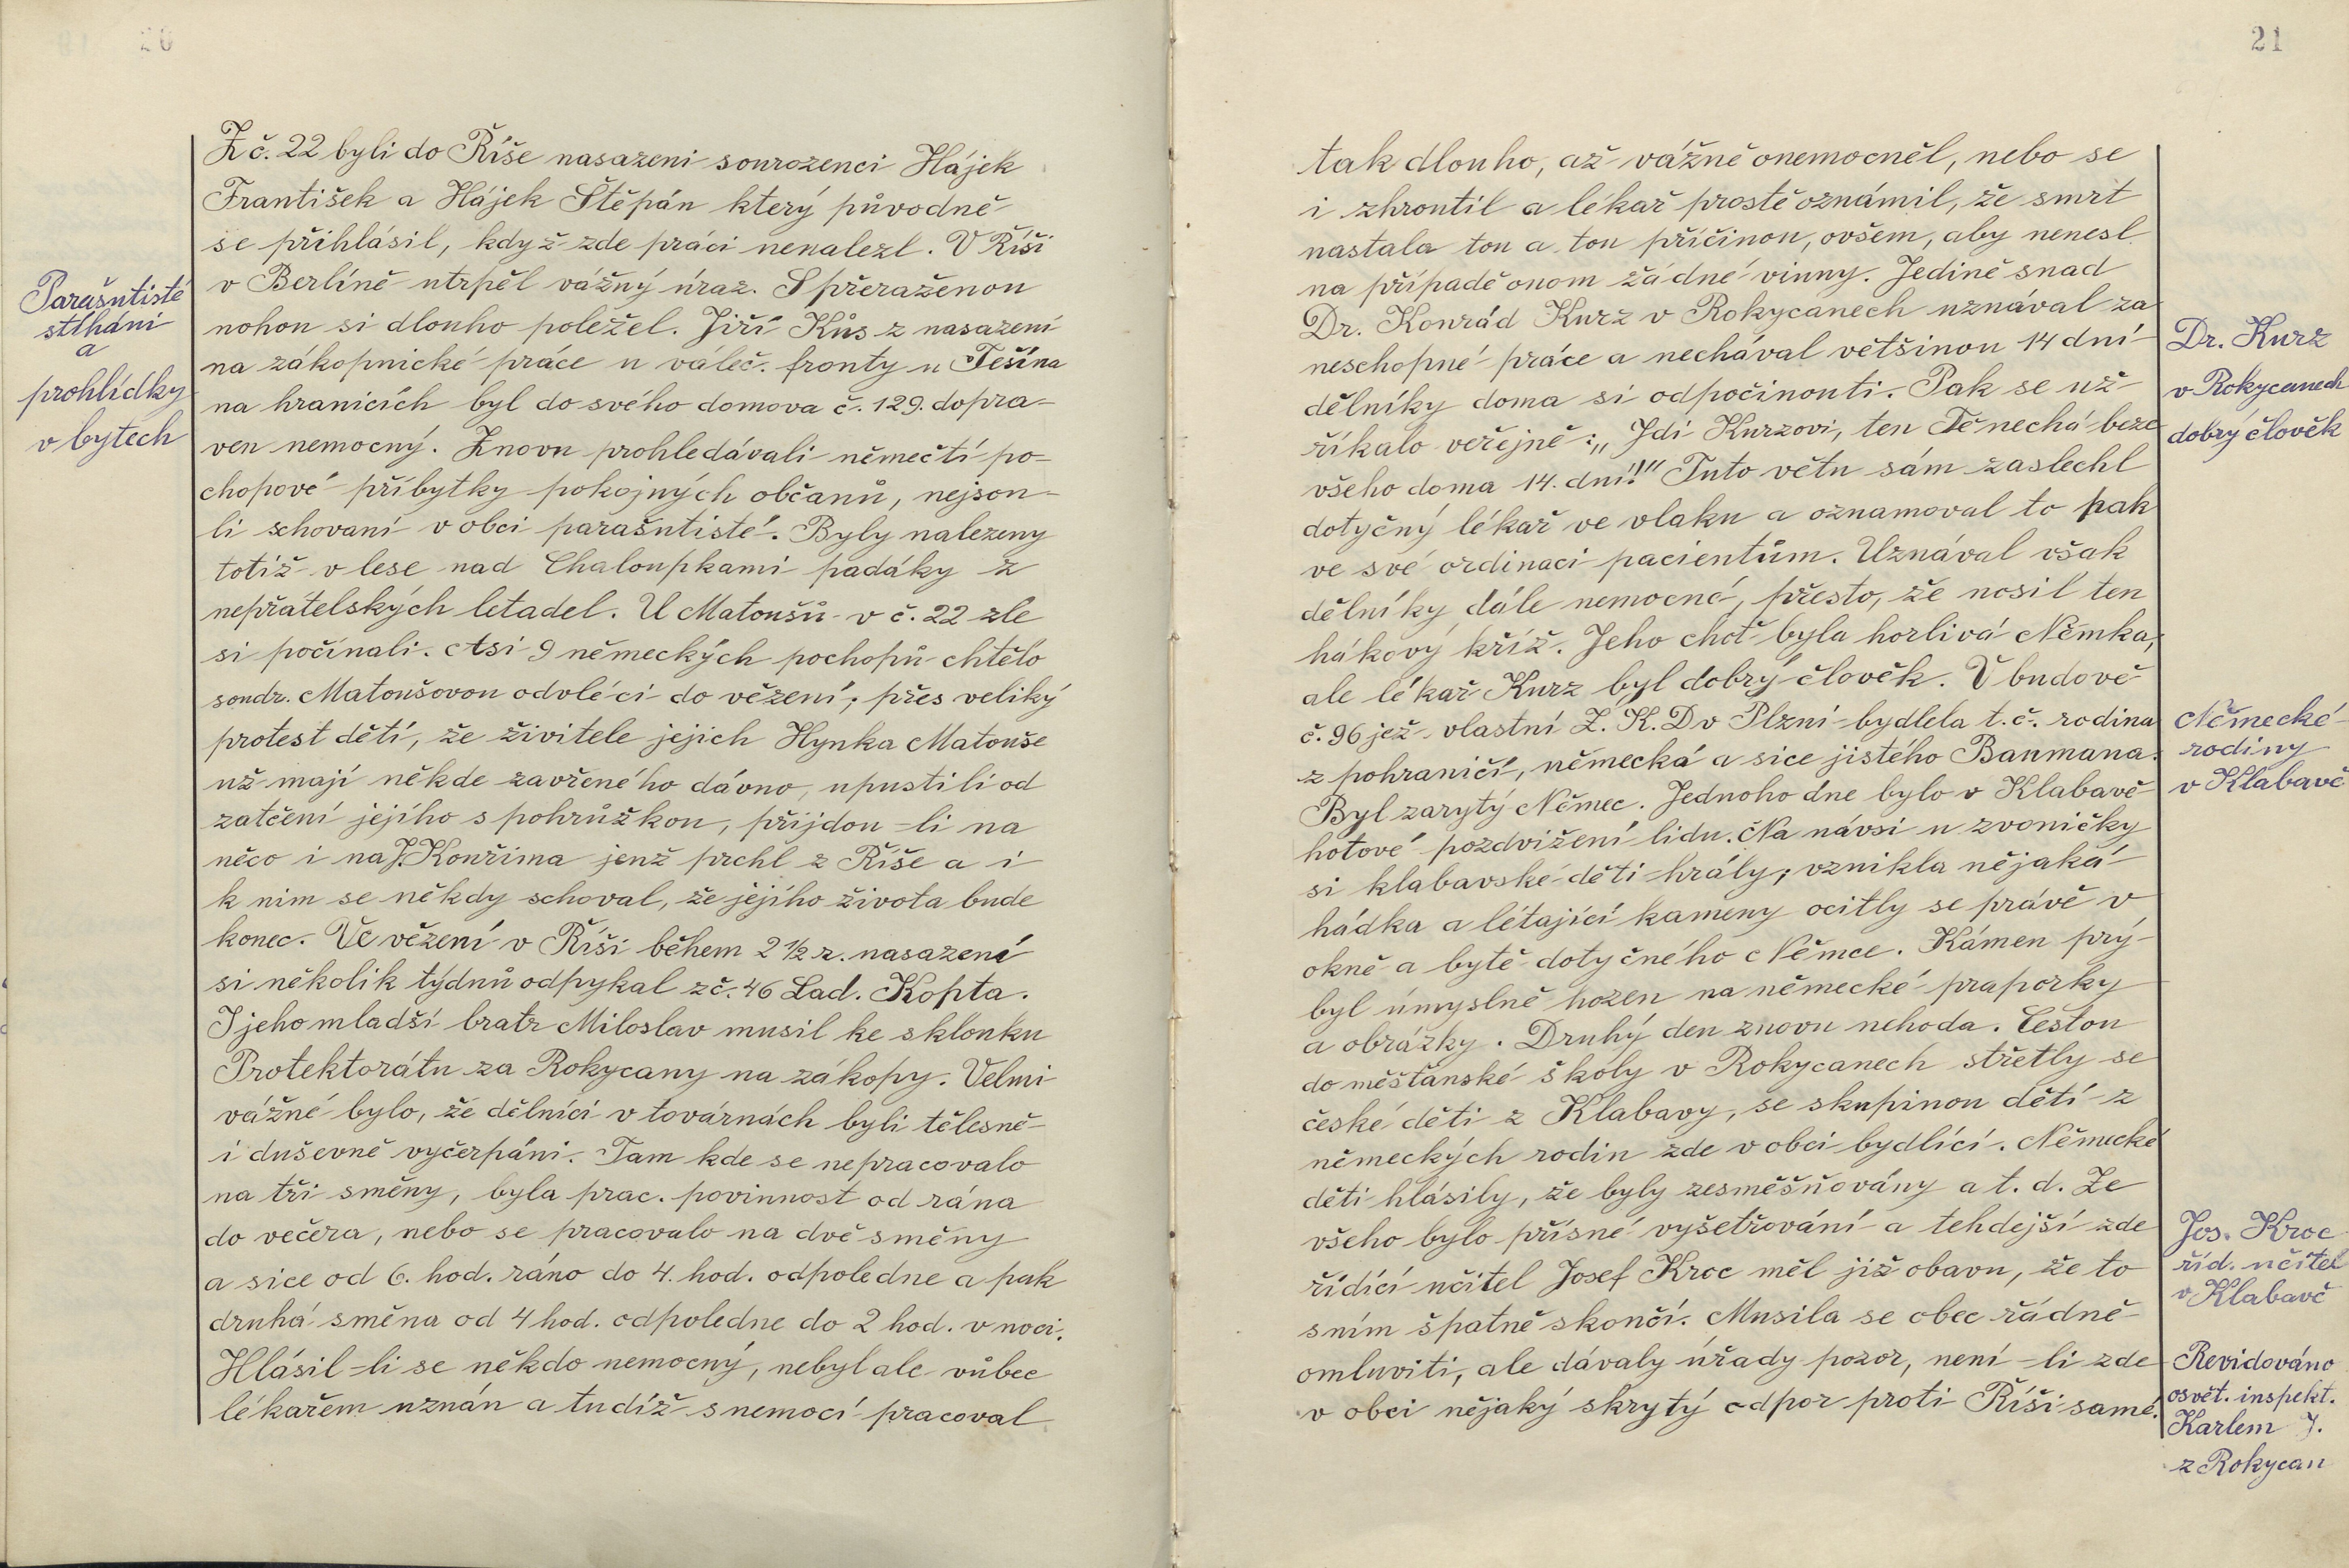 20
Z č. 22 byli do Říše nasazeni sourozenci Hájek
František a Hájek Štěpán který původně
se přihlásil, když zde práci nenalezl. V Říši
v Berlíně utrpěl vážný úraz. S přeraženou
nohou si dlouho poležel. Jiří Kůs z nasazení
na zákopnické práce u váleč. fronty u Těšína
na hranicích byl do svého domova č. 129. dopra-
ven nemocný. Znovu prohledávali němečtí po-
chopové příbytky pokojných občanů, nejsou-
li schovaní v obci parašutisté. Byly nalezeny
totiž v lese nad Chaloupkami padáky z
nepřátelských letadel. U Matoušů v č. 22 zle
si počínali. Asi 9 německých pochopů chtělo
soudr. Matoušovou odvléci do vězení; přes veliký
protest dětí, že živitele jejich Hynka Matouše
už mají někde zavřeného dávno, upustili od
zatčení jejího s pohrůžkou, přijdou-li na
něco i na J. Kouřima jenž prchl z Říše a i
k nim se někdy schoval, že jejího života bude
konec. Ve vězení v Říši během 2 ½ r. nasazení
si několik týdnů odpykal z č. 46 Lad. Kopta.
I jeho mladší bratr Miloslav musil ke sklonku
Protektorátu za Rokycany na zákopy. Velmi
vážné bylo, že dělníci v továrnách byli tělesně
i duševně vyčerpáni. Tam kde se nepracovalo
na tři směny, byla prac. povinnost od rána
do večera, nebo se pracovalo na dvě směny
a sice od 6. hod. ráno do 4. hod. odpoledne a pak
druhá směna od 4 hod. odpoledne do 2 hod. v noci.
Hlásil-li se někdo nemocný, nebyl ale vůbec
lékařem uznán a tudíž s nemocí pracoval
Parašutisté
stíháni
a
prohlídky
v bytech
21
tak dlouho, až vážně onemocněl, nebo se
i zhroutil a lékař prostě oznámil, že smrt
nastala tou a tou příčinou, ovšem, aby nenesl
na případě onom žádné vinny. Jedině snad
Dr. Konrád Kurz v Rokycanech uznával za
neschopné práce a nechával většinou 14 dní
dělníky doma si odpočinouti. Pak se už
říkalo veřejně: „Jdi Kurzovi, ten Tě nechá beze
všeho doma 14. dní!" Tuto větu sám zaslechl
dotyčný lékař ve vlaku a oznamoval to pak
ve své ordinaci pacientům. Uznával však
dělníky dále nemocné, přesto, že nosil ten
hákový kříž. Jeho choť byla horlivá Němka,
ale lékař Kurz byl dobrý člověk. V budově
č. 96 jež vlastní Z. K. D v Plzni bydlela t. č. rodina
z pohraničí, německá a sice jistého Baumana.
Byl zarytý Němec. Jednoho dne bylo v Klabavě
hotové pozdvižení lidu. Na návsi u zvoničky
si klabavské děti hrály; vznikla nějaká
hádka a létající kameny ocitly se právě v
okně a bytě dotyčného Němce. Kámen prý
byl úmyslně hozen na německé praporky
a obrázky. Druhý den znovu nehoda. Cestou
do měšťanské školy v Rokycanech střetly se
české děti z Klabavy, se skupinou dětí z
německých rodin zde v obci bydlící. Německé
děti hlásily, že byly zesměšňovány a t. d. Ze
všeho bylo přísné vyšetřování a tehdejší zde
řídící učitel Josef Kroc měl již obavu, že to
s ním špatně skončí. Musila se obec řádně
omluviti, ale dávaly úřady pozor, není-li zde
v obci nějaký skrytý odpor proti Říši samé.
Dr. Kurz
v Rokycanech
dobrý člověk
Německé
rodiny
v Klabavě
Jos. Kroc
říd. učitel
v Klabavě
Revidováno
osvět. inspekt.
Karlem J.
z Rokycan